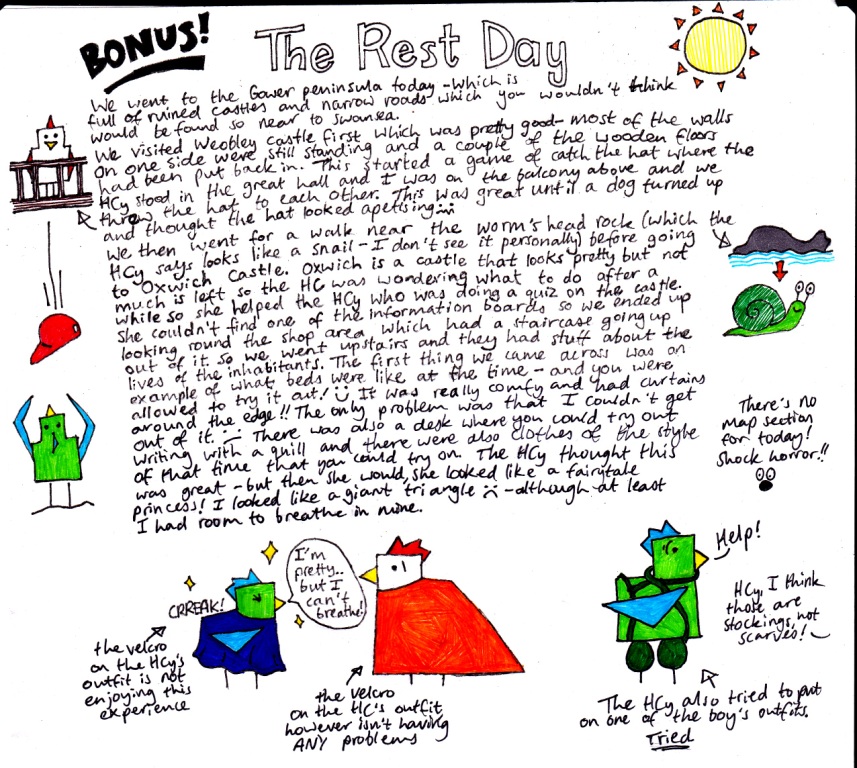 BONUS!
The Rest Day
We went to the Gower peninsula today - which is
full of ruined castles and narrow roads which you wouldn't think
would be found so near to Swansea.
We visited Weobley castle first which was pretty good - most of the walls
on one side were still standing and a couple of the wooden floors
had been put back in. This started a game of catch the hat where the
HCy stood in the great hall and I was on the balcony above and we
threw the hat to each other. This was great until a dog turned up
and thought the hat looked apetising
We then went for a walk near the worm's head rock (which the
HCy says looks like a snail - I don't see it personally) before going
to Oxwich Castle. Oxwich is a castle that looks pretty but not
much is left so the HC was wondering what to do after a
while so she helped the HCy who was doing a quiz on the castle.
She couldn't find one of the information boards so we ended up
looking round the shop area which had a staircase going up
out of it. So we went upstairs and they had stuff about the
lives of the inhabitants. The first thing we came across was an
example of what beds were like at the time - and you were
allowed to try it out! It was really comfy and had curtains
around the edge!! The only problem was that I couldn't get
out of it. There was also a desk where you could try out
writing with a quill and there were also clothes of the style
of that time that you could try on. The HCy thought this
was great - but then she would, she looked like a fairytale
princess! I looked like a giant triangle - although at least
I had room to breathe in mine.
There's no
map section
for today!
Shock horror!!
CRREAK!
I'm
pretty..
but I
can't
breathe!
the velcro
on the HCy's
outfit is not
enjoying this
experience
the velcro
on the HC's outfit
however isn't having
ANY problems
Help!
HCy, I think
those are
stockings, not
scarves!
The HCy also tried to put
on one of the boy's outfits.
Tried